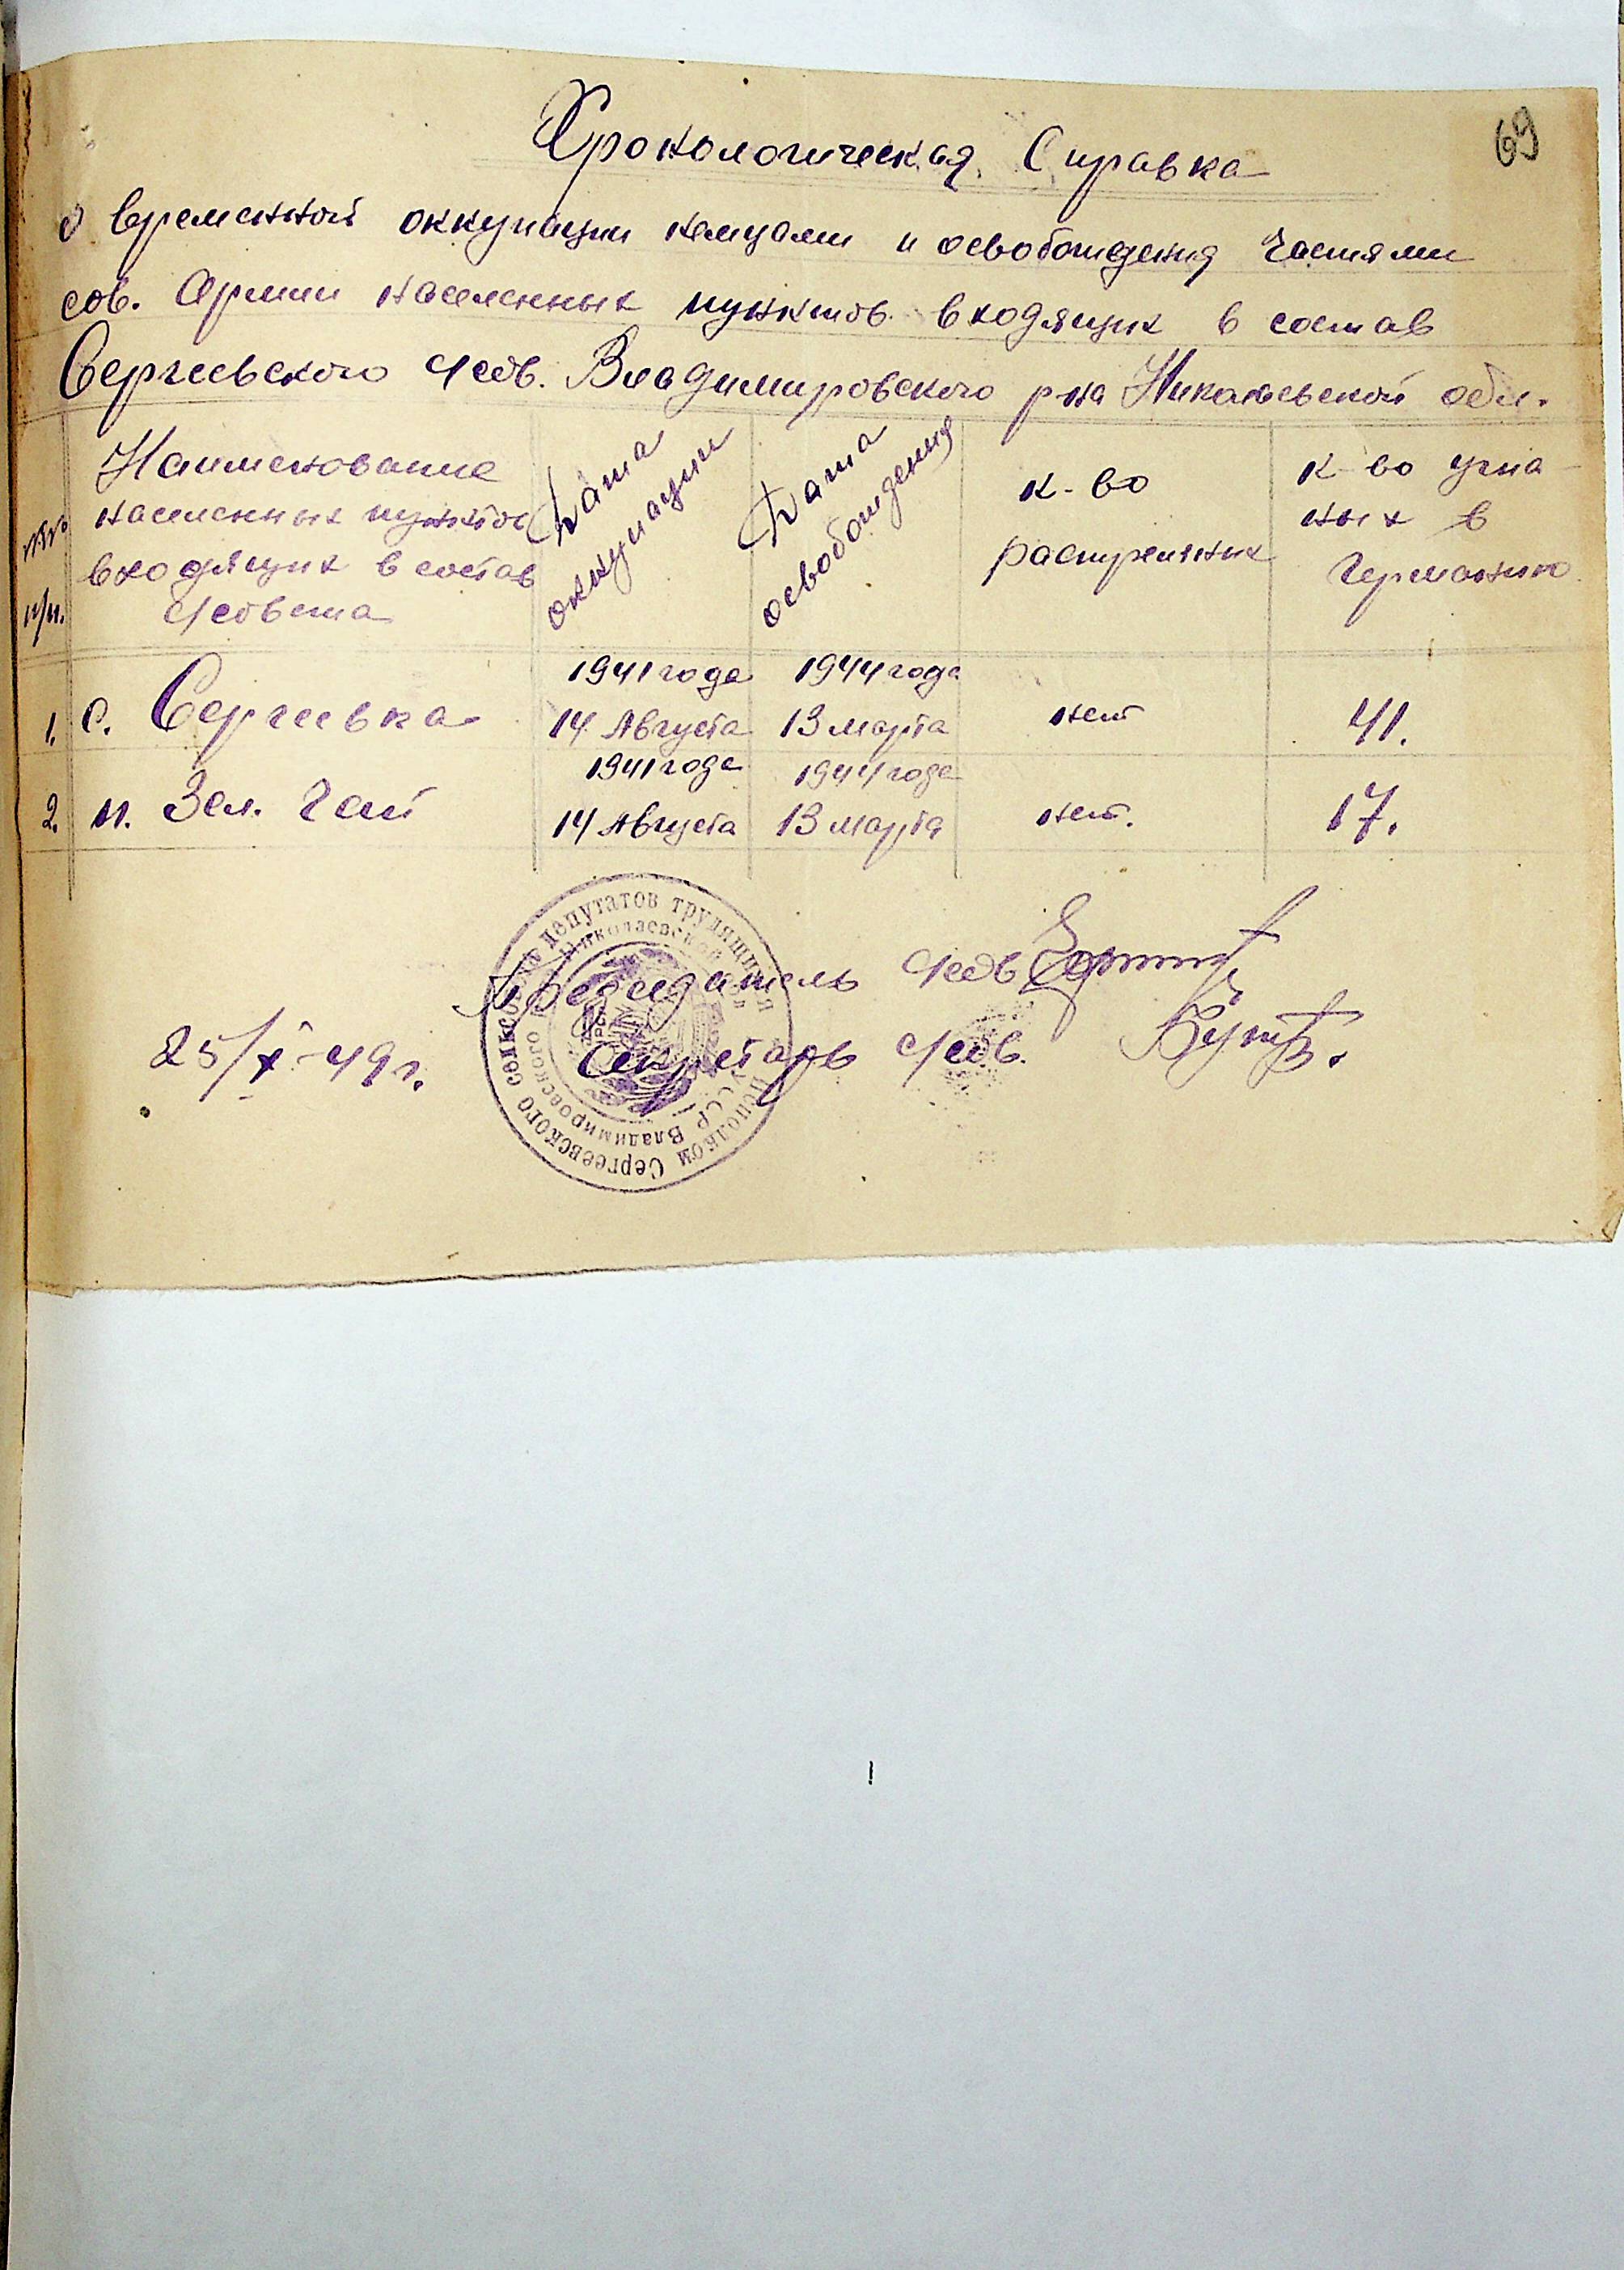 69
Хронологическая Справка
о временной оккупации немцами и освобождения частями
сов. Армии населенных пунктов входящих в состав
Сергеевского с/сов. Владимировского р-на Николаевской обл.
№№ п/п.
Наименование населенных пунктов входящих в состав с/совета
Дата оккупации
Дата освобождения
к-во расстрелянных
к-во угна- ных в Германию
1941 года 1944 года
1. с. Сергеевка 14 Августа 13 марта нет 41.
1941 года 1944 года
2. п. Зел. Гай 14 Августа 13 марта нет. 17.
Председатель с/сов
25/X-49 г. Секретарь с/сов.
Исполком Сергеевского сельсовета депутатов трудящихся
УССР Владимировского Николаевской